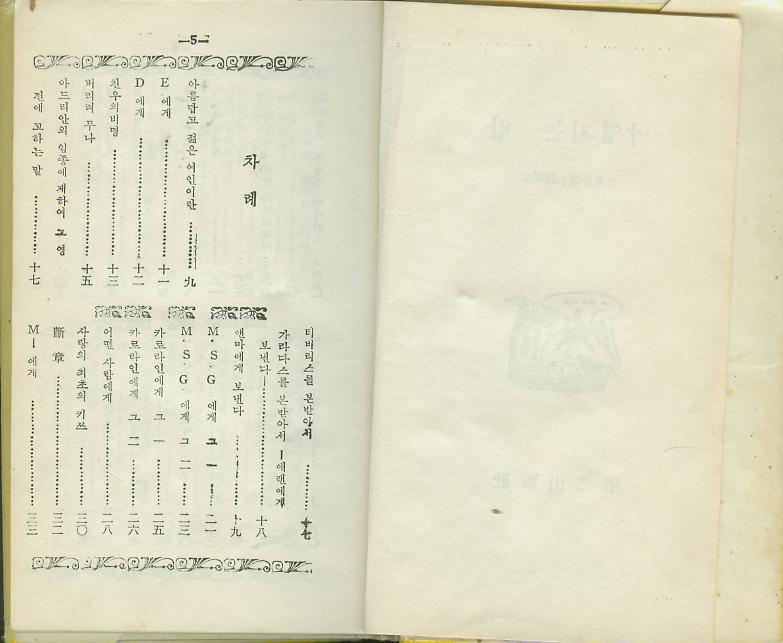 —5—
차 례
아름답고 젊은 여인이란 ………… 九
E 에게 ………… 十一
D 에게 ………… 十二
친우의비명 ………… 十三
버리려 무나 ………… 十五
아드리안의 임종에 제하여 그 영
전에 고하는 말 ………… 十七
티바리스를 본받아서 ………… 十七
가라다스를 본받아서 —애랜에게
보낸다 ………… 十八
앤마에게 보낸다 ………… 十九
M·S·G 에게 그 一 ………… 二一
M·S·G 에게 그 二 ………… 二三
카로라인에게 그 一 ………… 二五
카르라인에게 그 二 ………… 二六
어떤 사람에게 ………… 二八
사랑의 최초의 키쓰 ………… 三〇
斷 章 ………… 三二
M— 에게 ………… 三三